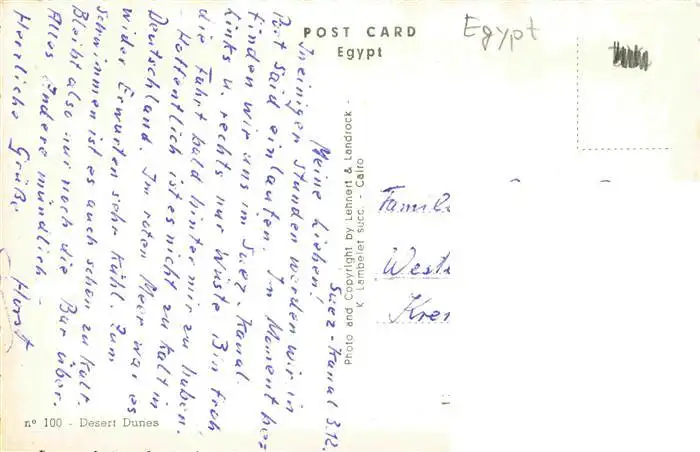 POST CARD
Egypt
Egypt
Suez-Kanal 3.12.
Meine Lieben!
In einigen Stunden werden wir in
Port Said einlaufen. Im Moment be-
finden wir uns im Suez-Kanal.
Links u. rechts nur Wüste. Bin froh
die Fahrt bald hinter mir zu haben.
- Hoffentlich ist es nicht zu kalt in
Deutschland. Im roten Meer war es
wider Erwarten sehr kühl. Zum
schwimmen ist es auch schon zu kalt.
Bleibt also nur noch die Bar über.
Alles Andere mündlich -
Herzliche Grüße
Horst
Photo and Copyright by Lehnert & Landrock -
K. Lambelet succ. - Cairo
Famil
West
Kre
nº 100 - Desert Dunes